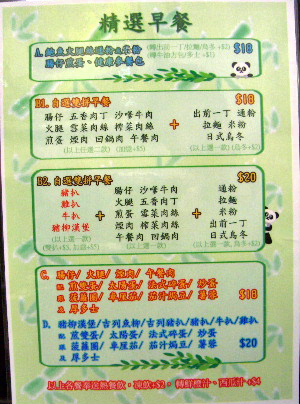 精選早餐
A. 鮑魚火腿絲通粉或米粉 (轉出前一丁/拉麵/烏冬 +$2) $18
腸仔煎蛋、健康麥餐包
B1. 自選雙拼早餐 $18
腸仔 五香肉丁 沙嗲牛肉 出前一丁 通粉
火腿 雪菜肉絲 榨菜肉絲 + 拉麵 米粉
煎蛋 煙肉 回鍋肉 午餐肉 日式烏冬
(以上任選二款) (加蛋+$5) (以上選一款) (烏冬+$2)
B2. 自選雙拼早餐 $20
豬扒 腸仔 沙嗲牛肉 通粉
雞扒 五香肉丁 拉麵
牛扒 + 火腿 + 米粉
豬柳漢堡 煎蛋 雪菜肉絲 出前一丁
煙肉 榨菜肉絲 日式烏冬
(以上選一款) 午餐肉 回鍋肉 (以上選一款)
C. 腸仔/ 火腿/ 煙肉/ 午餐肉
配 煎雙蛋/ 太陽蛋/ 法式碎蛋/ 炒蛋
跟 菠蘿圃/ 茄汁焗豆/ 薯蓉 $18
及 厚多士
D. 豬柳漢堡/吉列魚柳/吉列豬扒/豬扒/牛扒/雞扒
配 煎雙蛋/ 太陽蛋/ 法式碎蛋/ 炒蛋
跟 菠蘿圃/ 茄汁焗豆/ 薯蓉 $20
及 厚多士
以上各餐奉送熱餐飲，凍飲+$2，轉鮮橙汁、西瓜汁 +$4